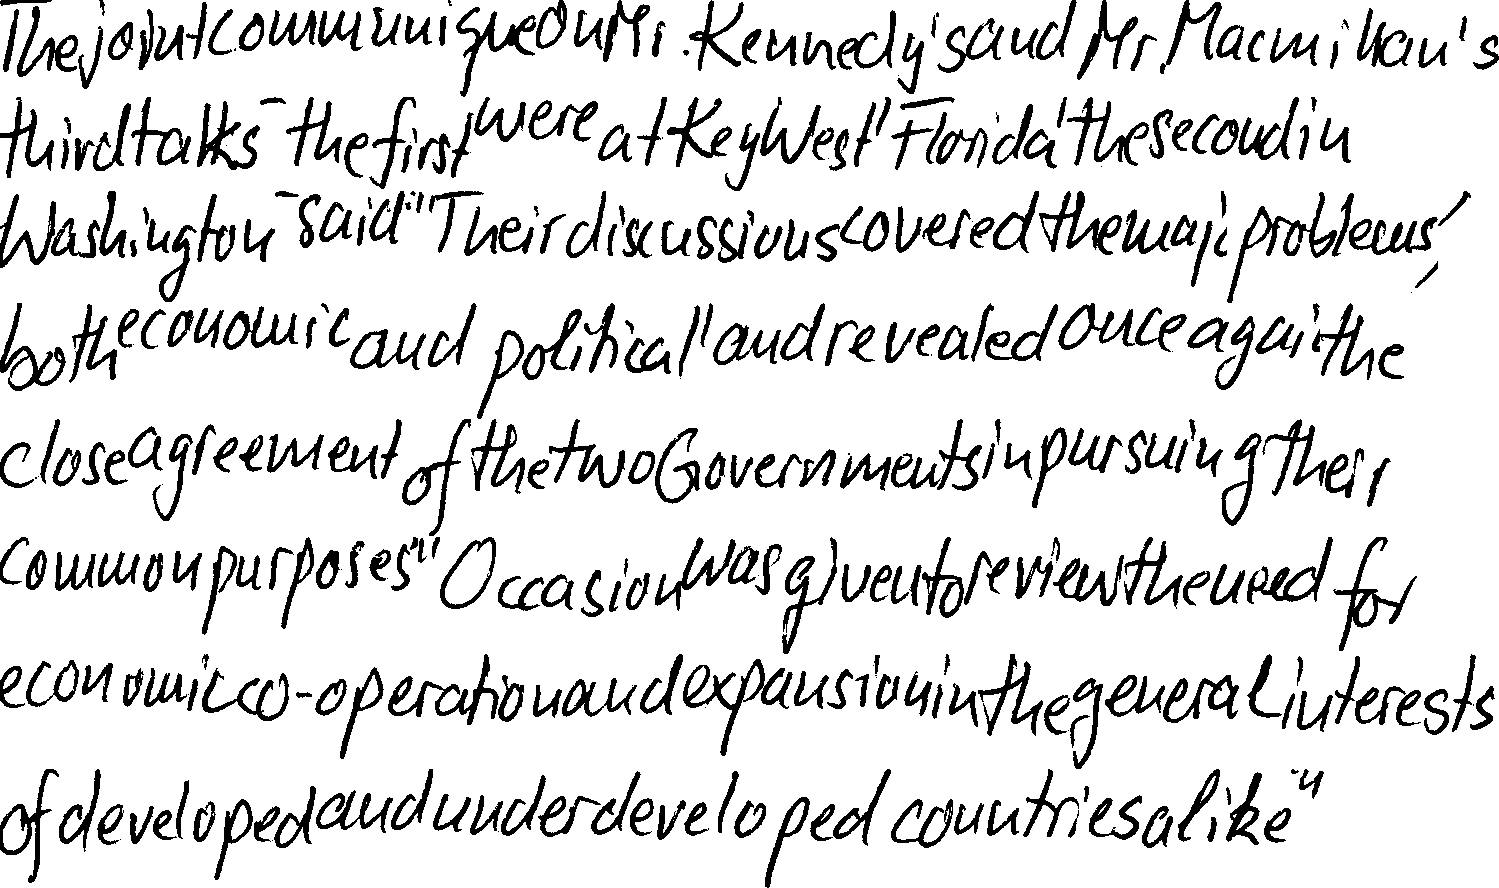 The joint communique on Mr. Kennedy's and Mr. Macmillan's
third talks - the first were at Key West, Florida, the second in
Washington - said "Their discussions covered the major problems,
both economic and political, and revealed once again the
close agreement of the two Governments in pursuing their
common purposes." Occasion was given to review the need for
economic co-operation and expansion in the general interests
of developed and underdeveloped countries alike"